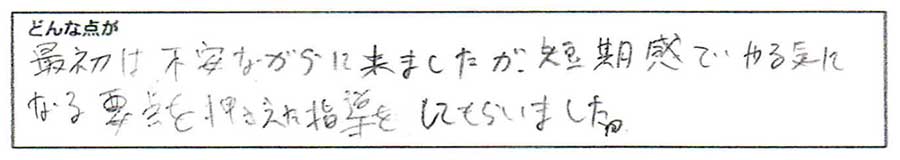 どんな点が
最初は不安ながらに来ましたが、短期感でやる気に
なる要点を押さえた指導をしてもらいました。